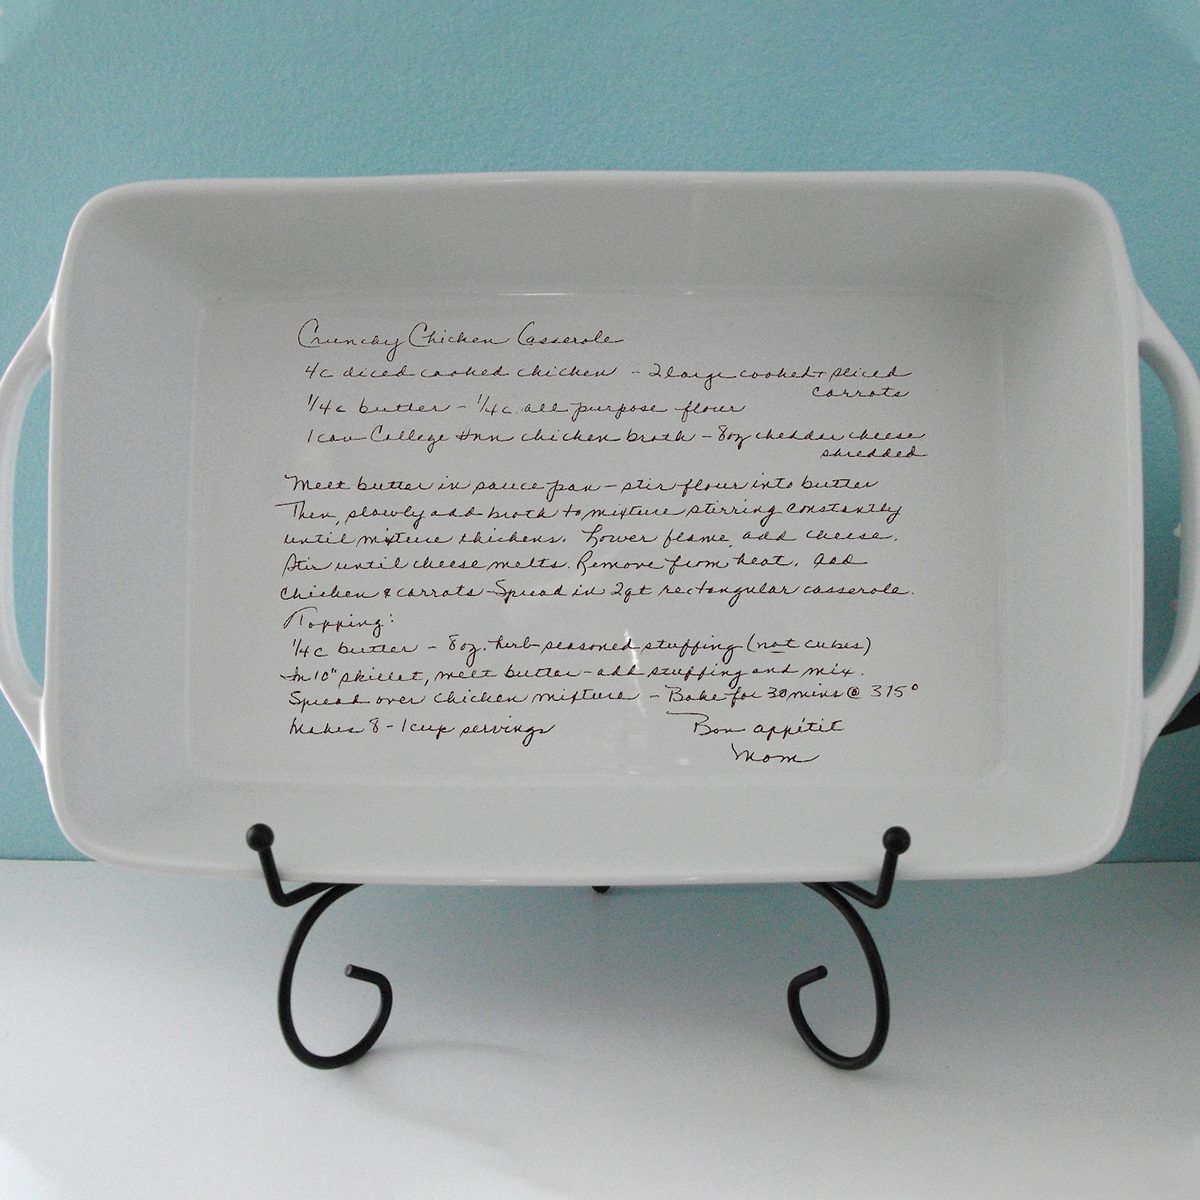 Crunchy Chicken Casserole
4c diced cooked chicken - 2 large cooked + sliced
carrots
1/4 c butter - 1/4 c. all purpose flour
1 can College Inn chicken broth - 8oz chedder cheese
shredded
Melt butter in sauce pan - stir flour into butter
Then, slowly add broth to mixture stirring constantly
until mixture thickens. Lower flame, add cheese.
Stir until cheese melts. Remove from heat. Add
chicken & carrots - Spread in 2qt rectangular casserole.
Topping:
1/4 c butter - 8oz. herb-seasoned stuffing (not cubes)
In 10" skillet, melt butter - add stuffing and mix.
Spread over chicken mixture - Bake for 30 mins @ 375°
Makes 8 - 1 cup servings
Bon appétit
Mom